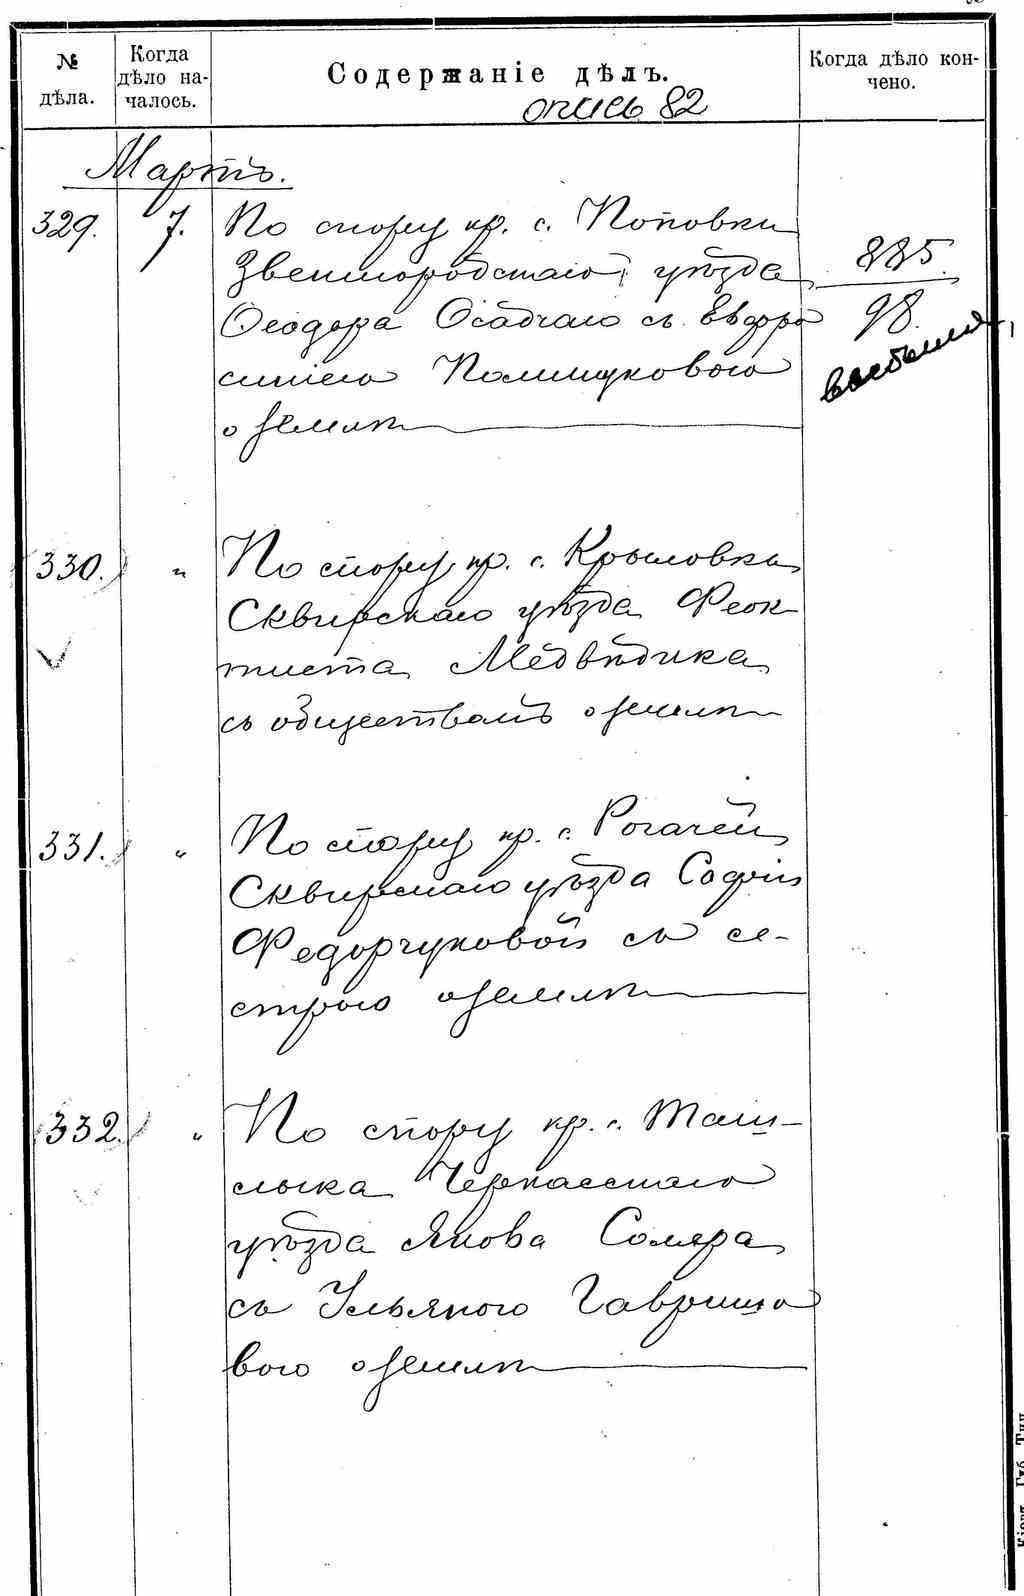 № дѣла.
Когда дѣло на-
чалось.
Содержаніе дѣлъ.
Когда дѣло кон-
чено.
опись 82
Мартъ.
329. 7. По спору кр. с. Поповки
Звенигородскаго уѣзда
Ѳеодора Осадчаго съ Евфро
синіею Полищуковою
о землѣ
885
98
выбыли
330. " По спору кр. с. Крыловки
Сквирскаго уѣзда Феок
тиста Медвѣдика
съ обществомъ о землѣ
331. " По спору кр. с. Рогачей
Сквирскаго уѣзда Софіи
Федорчуковой съ се-
строю о землѣ
332. " По спору кр. с. Таш-
лыка Черкасскаго
уѣзда Якова Соляра
съ Ульяною Гавришо
вою о землѣ
Кіевъ. Губ. Тип.